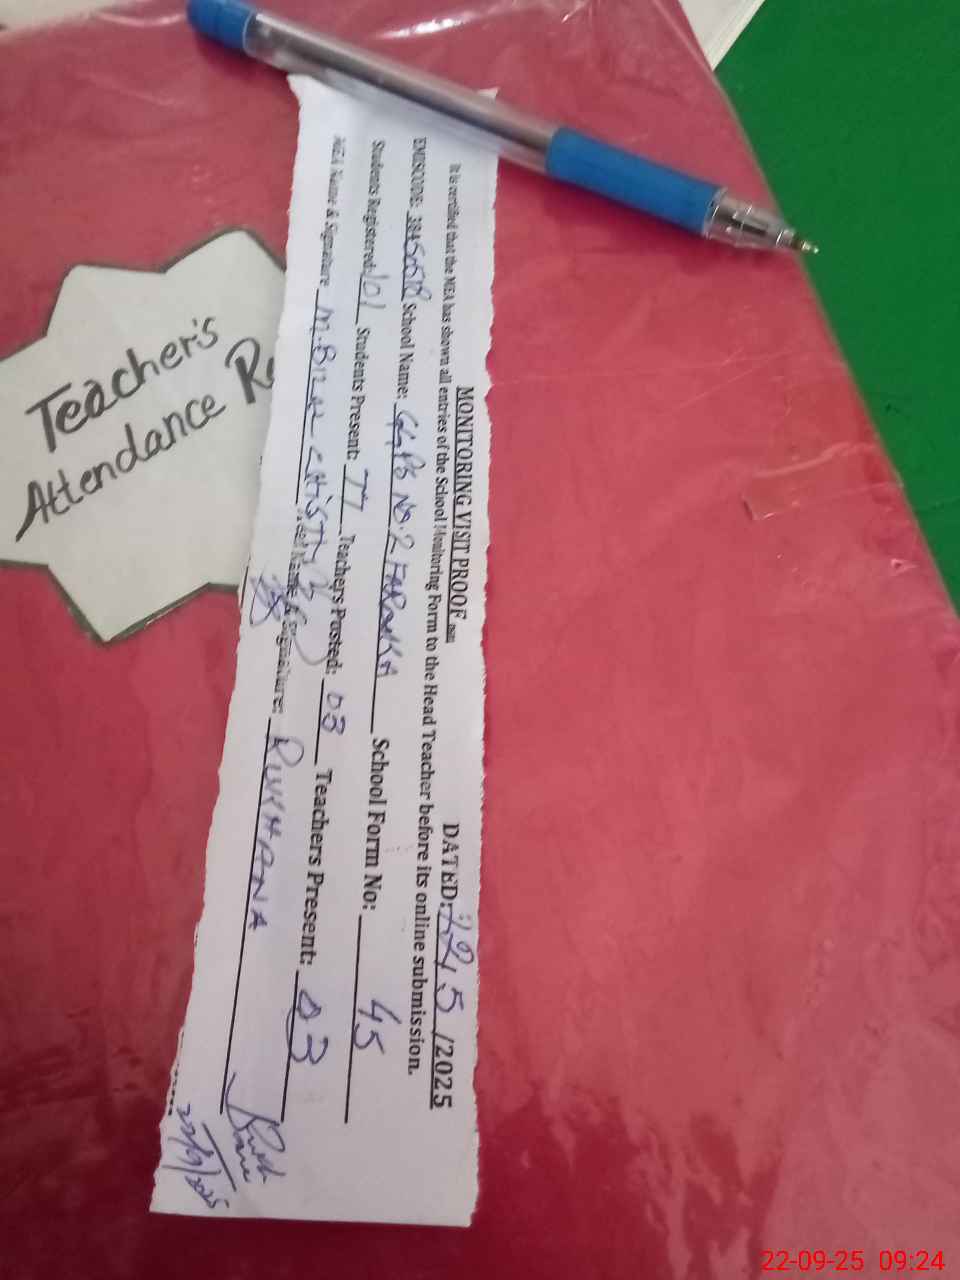 MONITORING VISIT PROOF DATED: 22/5/2025
It is certified that the MEA has shown all entries of the School Monitoring Form to the Head Teacher before its online submission.
EMISCODE: School Name: GGPS No. 2 FAROUKA School Form No: 45
Students Registered: 101 Students Present: 77 Teachers Posted: 03 Teachers Present: 03
MEA Name & Signature M. Name & Signature: RUKHANA
22/9/2025
Teacher's
Attendance
22-09-25 09:24